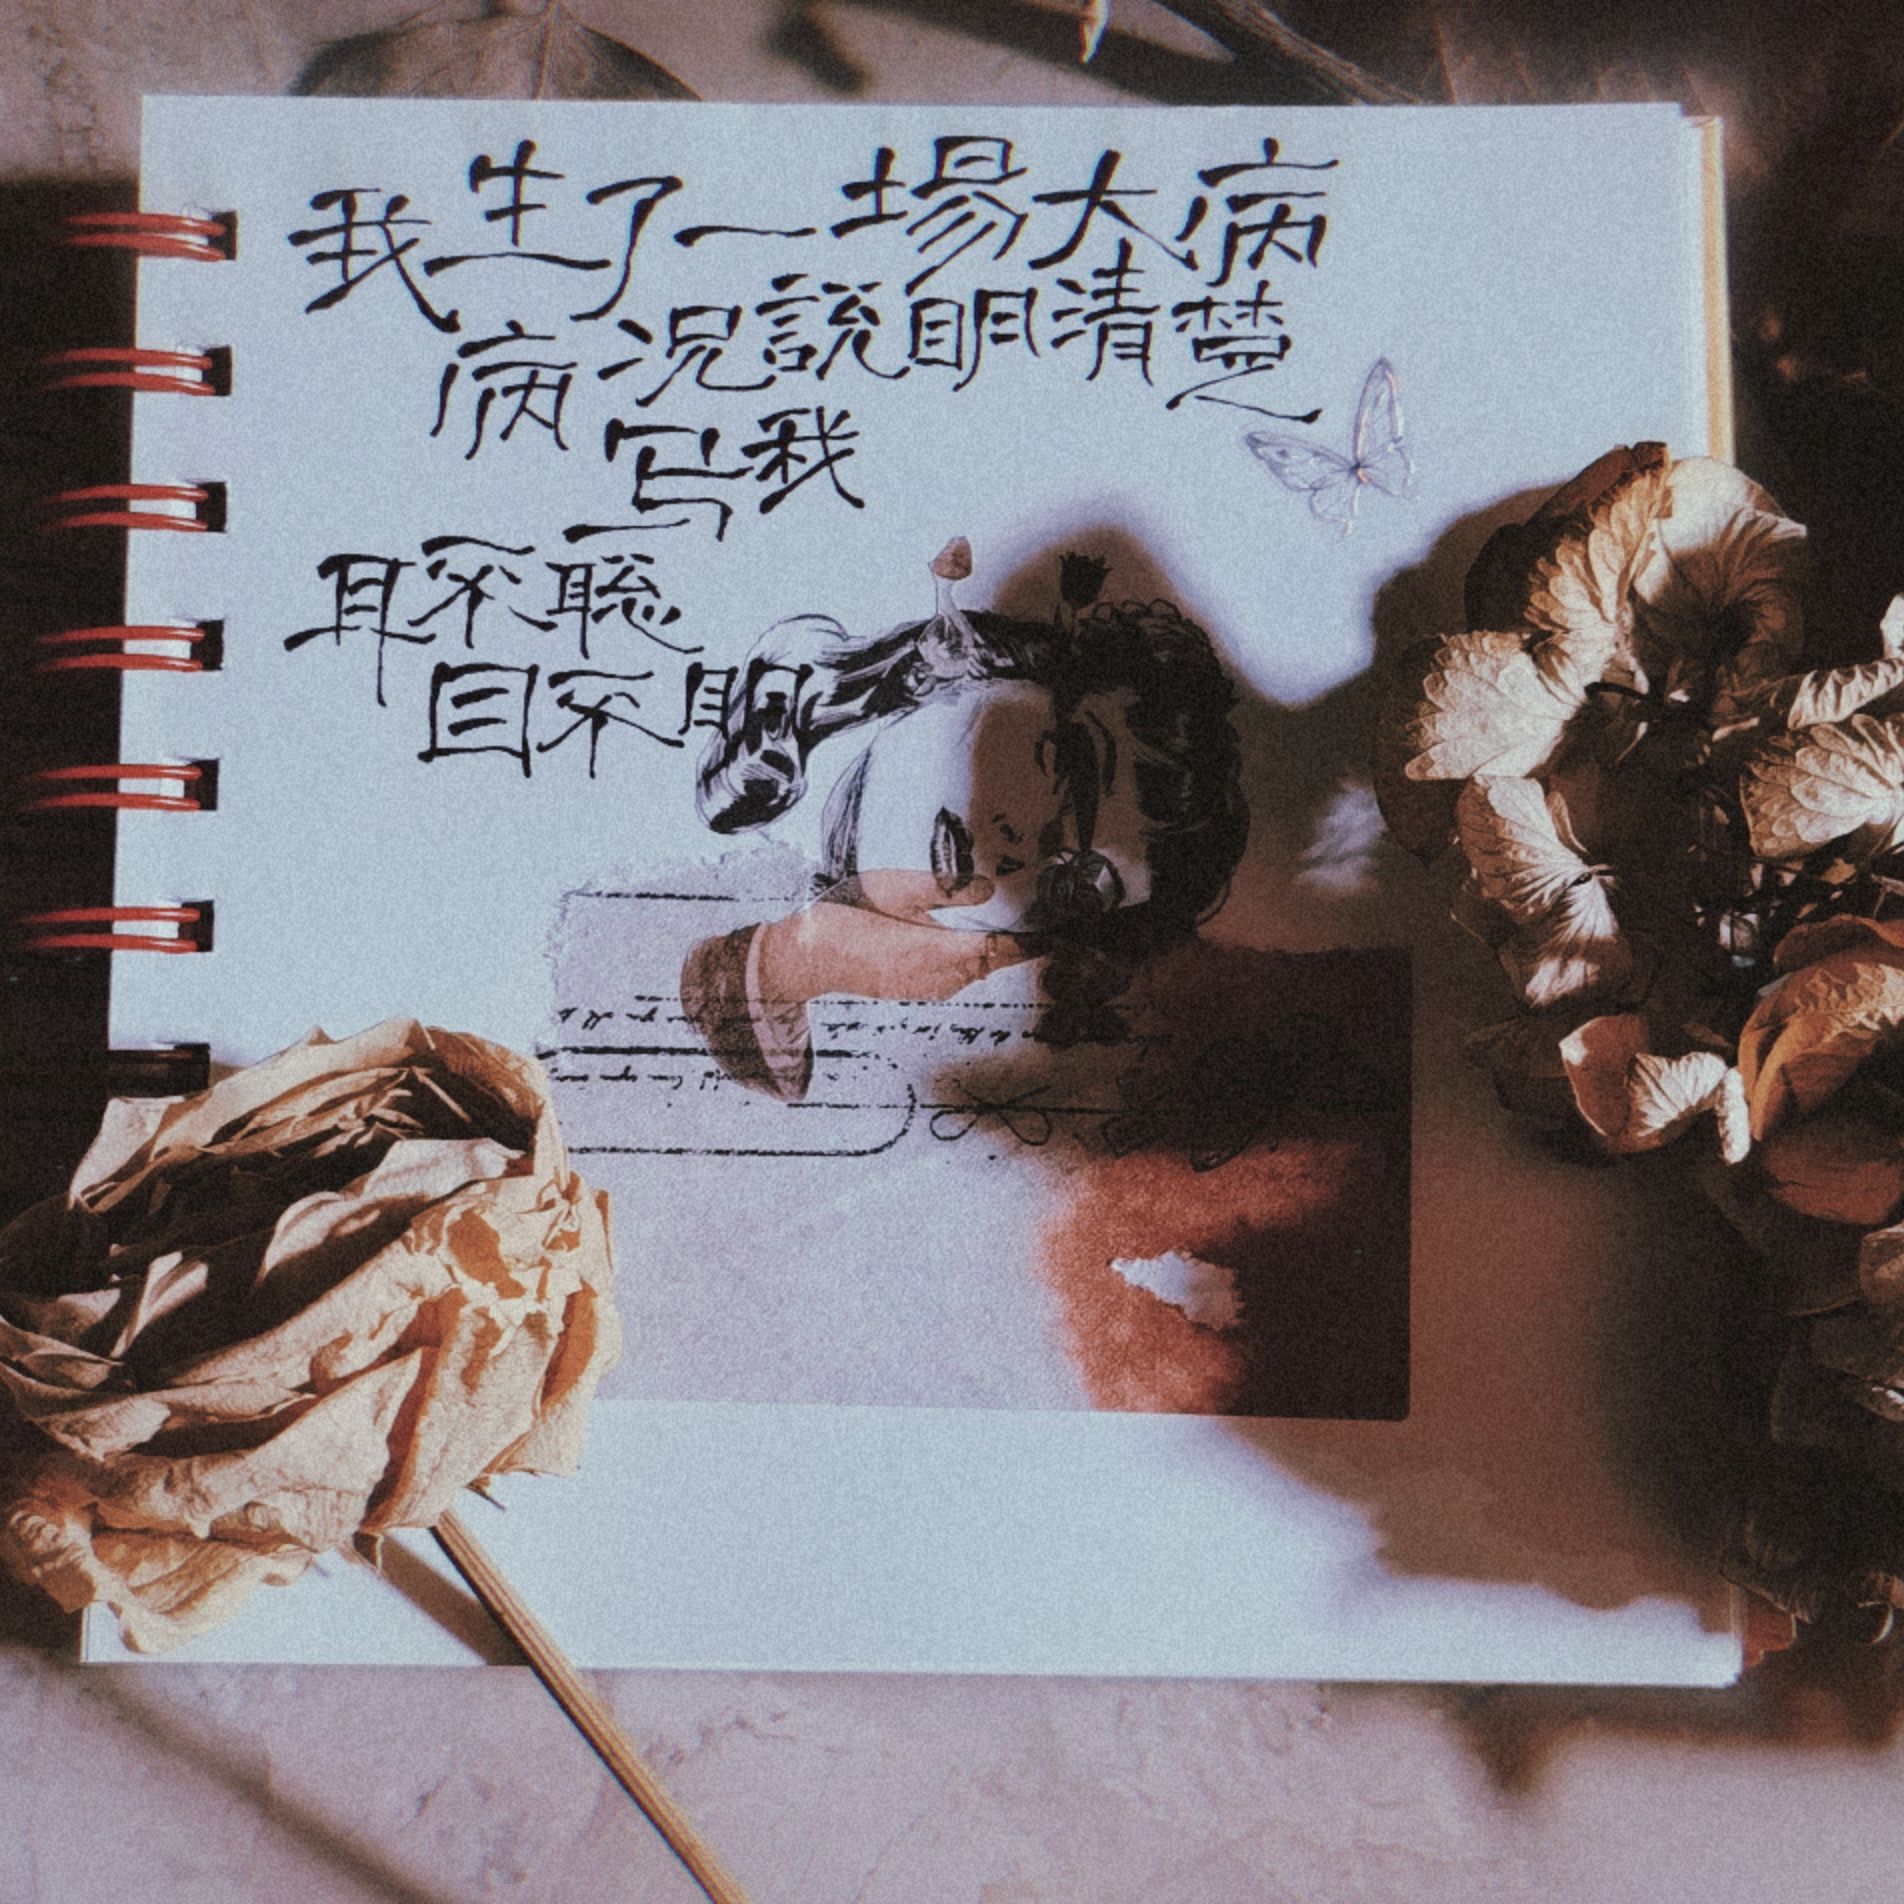 我生了一場大病
病况説明清楚
写我
耳不聡
目不明